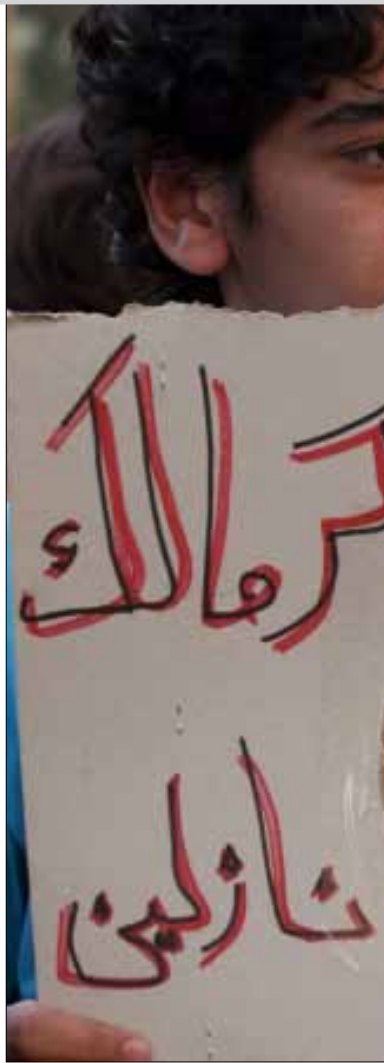 كرمالك
نازلين